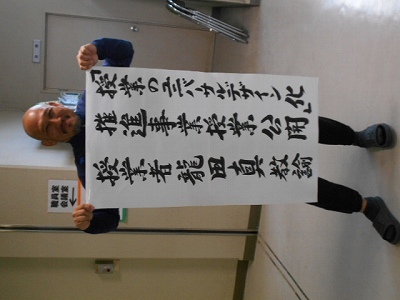 「授業のユニバーサルデザイン化」
推進事業授業公開
授業者龍田真教諭
職員室
会議室